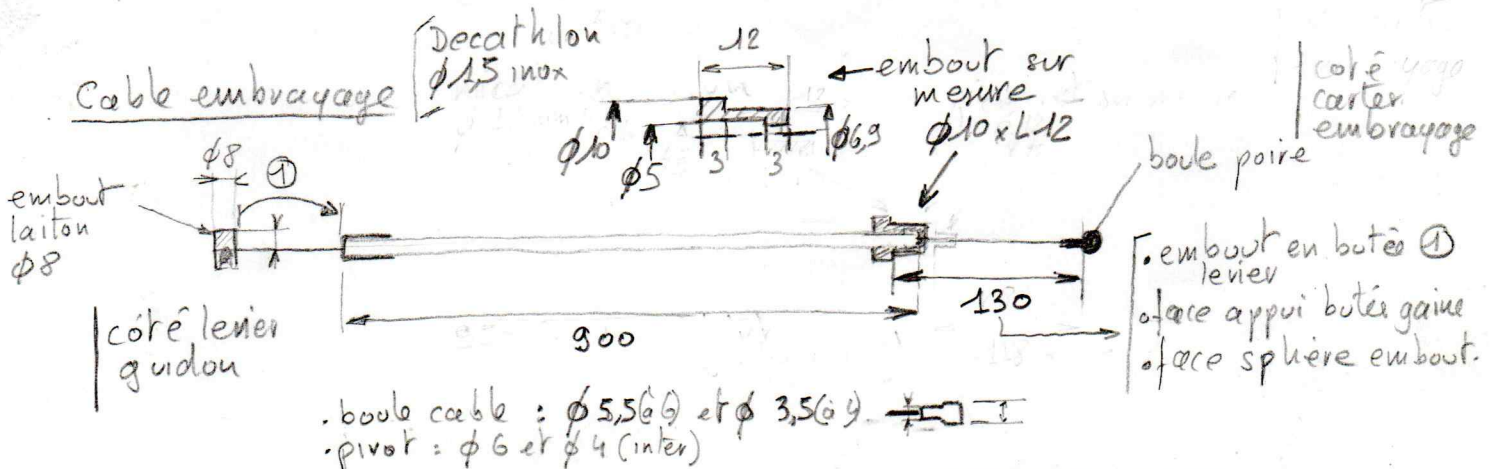 Cable embrayage
Decathlon
ϕ1,5 inox
12
embout sur
mesure
ϕ10 x L12
ϕ10
ϕ5
3
3
ϕ6,9
coté
carter
embrayage
boule poire
ϕ8
①
embout
laiton
ϕ8
côté levier
guidon
900
130
. embout en butée ①
levier
. face appui butée gaine
. face sphère embout.
. boule cable : ϕ5,5 (à 6) et ϕ 3,5 (à 4)
. pivot : ϕ 6 et ϕ 4 (inter)